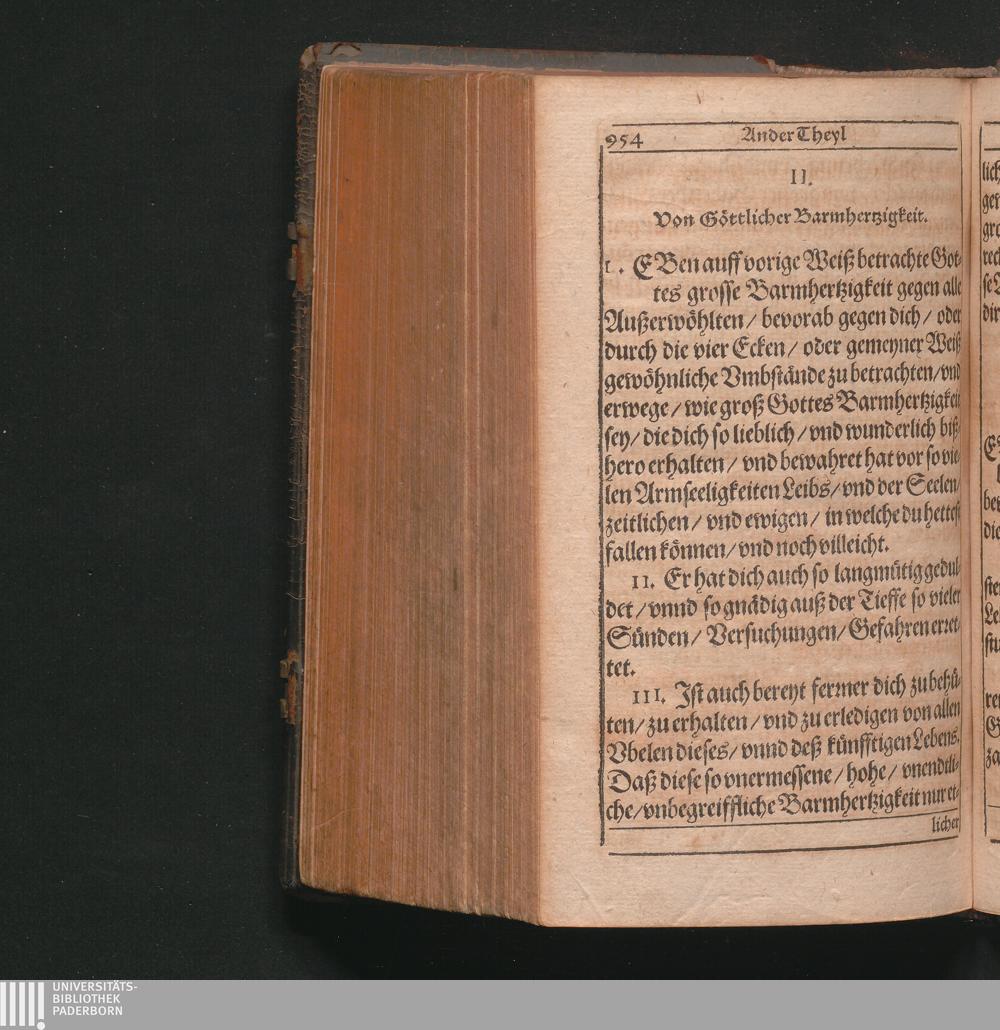 954 Ander Theyl
II.
Von Göttlicher Barmhertzigkeit.
I. EBen auff vorige Weiß betrachte Got-
tes grosse Barmhertzigkeit gegen alle
Außerwöhlten / bevorab gegen dich / oder
durch die vier Ecken / oder gemeyner Weiß
gewöhnliche Vmbstände zu betrachten/vnd
erwege / wie groß Gottes Barmhertzigkeit
sey/ die dich so lieblich / vnd wunderlich biß-
hero erhalten / vnd bewahret hat vor so vie-
len Armseeligkeiten Leibs/ vnd der Seelen/
zeitlichen / vnd ewigen / in welche du hettest
fallen können/ vnd noch villeicht.
II. Er hat dich auch so langmütig gedul-
det / vnnd so gnädig auß der Tieffe so vieler
Sünden / Versuchungen/ Gefahren erret-
tet.
III. Ist auch bereyt ferrner dich zu behü-
ten/ zu erhalten / vnd zu erledigen von allen
Vbelen dieses/ vnnd deß künfftigen Lebens.
Daß diese so vnermessene / hohe / vnendtli-
che/vnbegreiffliche Barmhertzigkeit nur et-
licher
UNIVERSITÄTS-
BIBLIOTHEK
PADERBORN